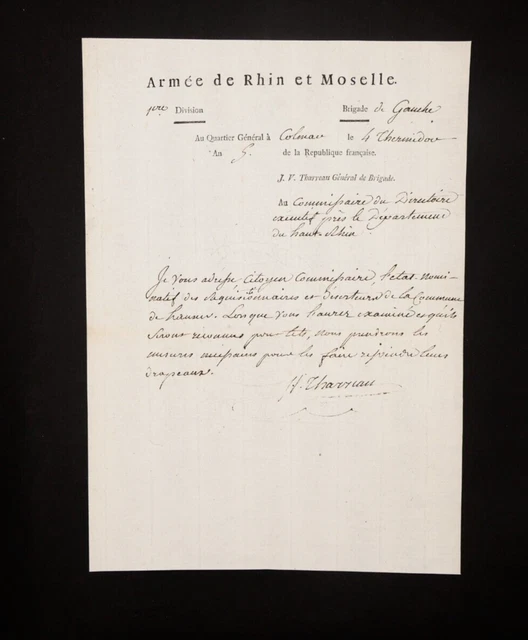 Armée de Rhin et Moselle.
1ere Division
Brigade de Gauche
Au Quartier Général à Colmar le 4 Thermidor
An 5. de la Republique française.
J. V. Tharreau Général de Brigade.
Au Commissaire du Directoire
executif près le Département
du haut-Rhin
Je vous adresse, Citoyen Commissaire, l'etat nomi-
natif des Requisitionnaires et deserteurs de la Commune
de Lorsque vous l'aurez examiné et qu'ils
seront reconnus pour tels, nous prendrons les
mesures necessaires pour les faire rejoindre leurs
drapeaux.
Tharreau